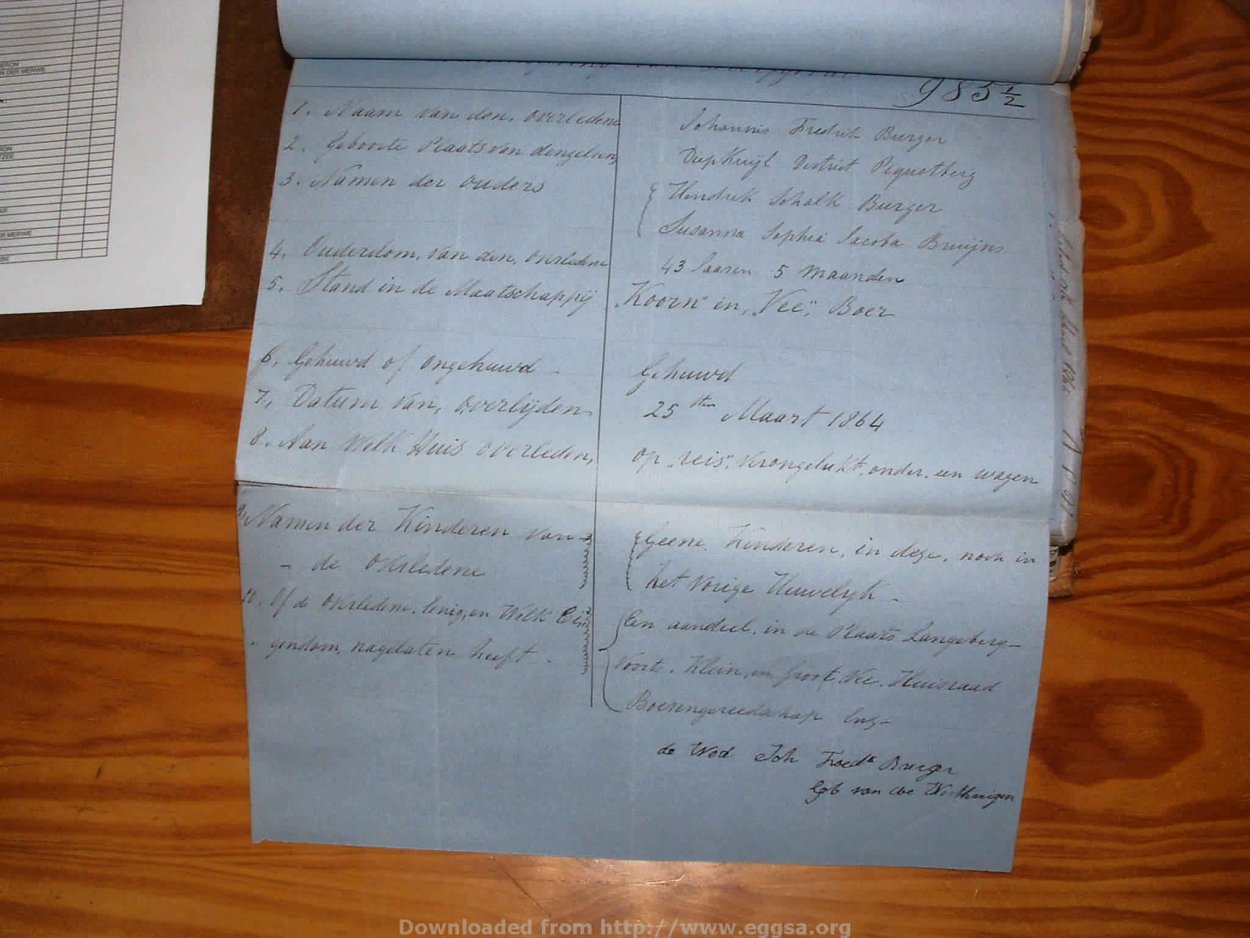 985 1/2
1. Naam van den, overledene
Johannis Fredrik Burger
2. Geboorte Plaats van denzelven,
Diep Kuijl District Piquetberg
3. Namen der ouders
Hendrik Schalk Burger
Susanna Sophia Jacoba Bruijns
4. Ouderdom, van den, overledene
43 Jaaren 5 maanden
5. Stand in de Maatschappij
"Koorn" en, "Vee", Boer
6. Gehuwd of ongehuwd -
Gehuwd
7. Datum van, overlijden
25 sten Maart 1864
8. Aan welk Huis overleden,
op "reis", verongelukt, onder, een wagen
9. Namen der Kinderen van
- de overledene
Geene, Kinderen, in deze, noch in
het vorige Huwelijk -
10. Of de overledene, Eenig, en Welk Ei
gendom, nagelaten heeft -
Een aandeel, in de Plaats Langeberg -
Voorts - Klein, en Groot, Vee - Huisraad
Boerengereedschap Enz -
de Wed Joh Fredk Burger
Geb van der Westhuizen
Downloaded from http://www.eggsa.org